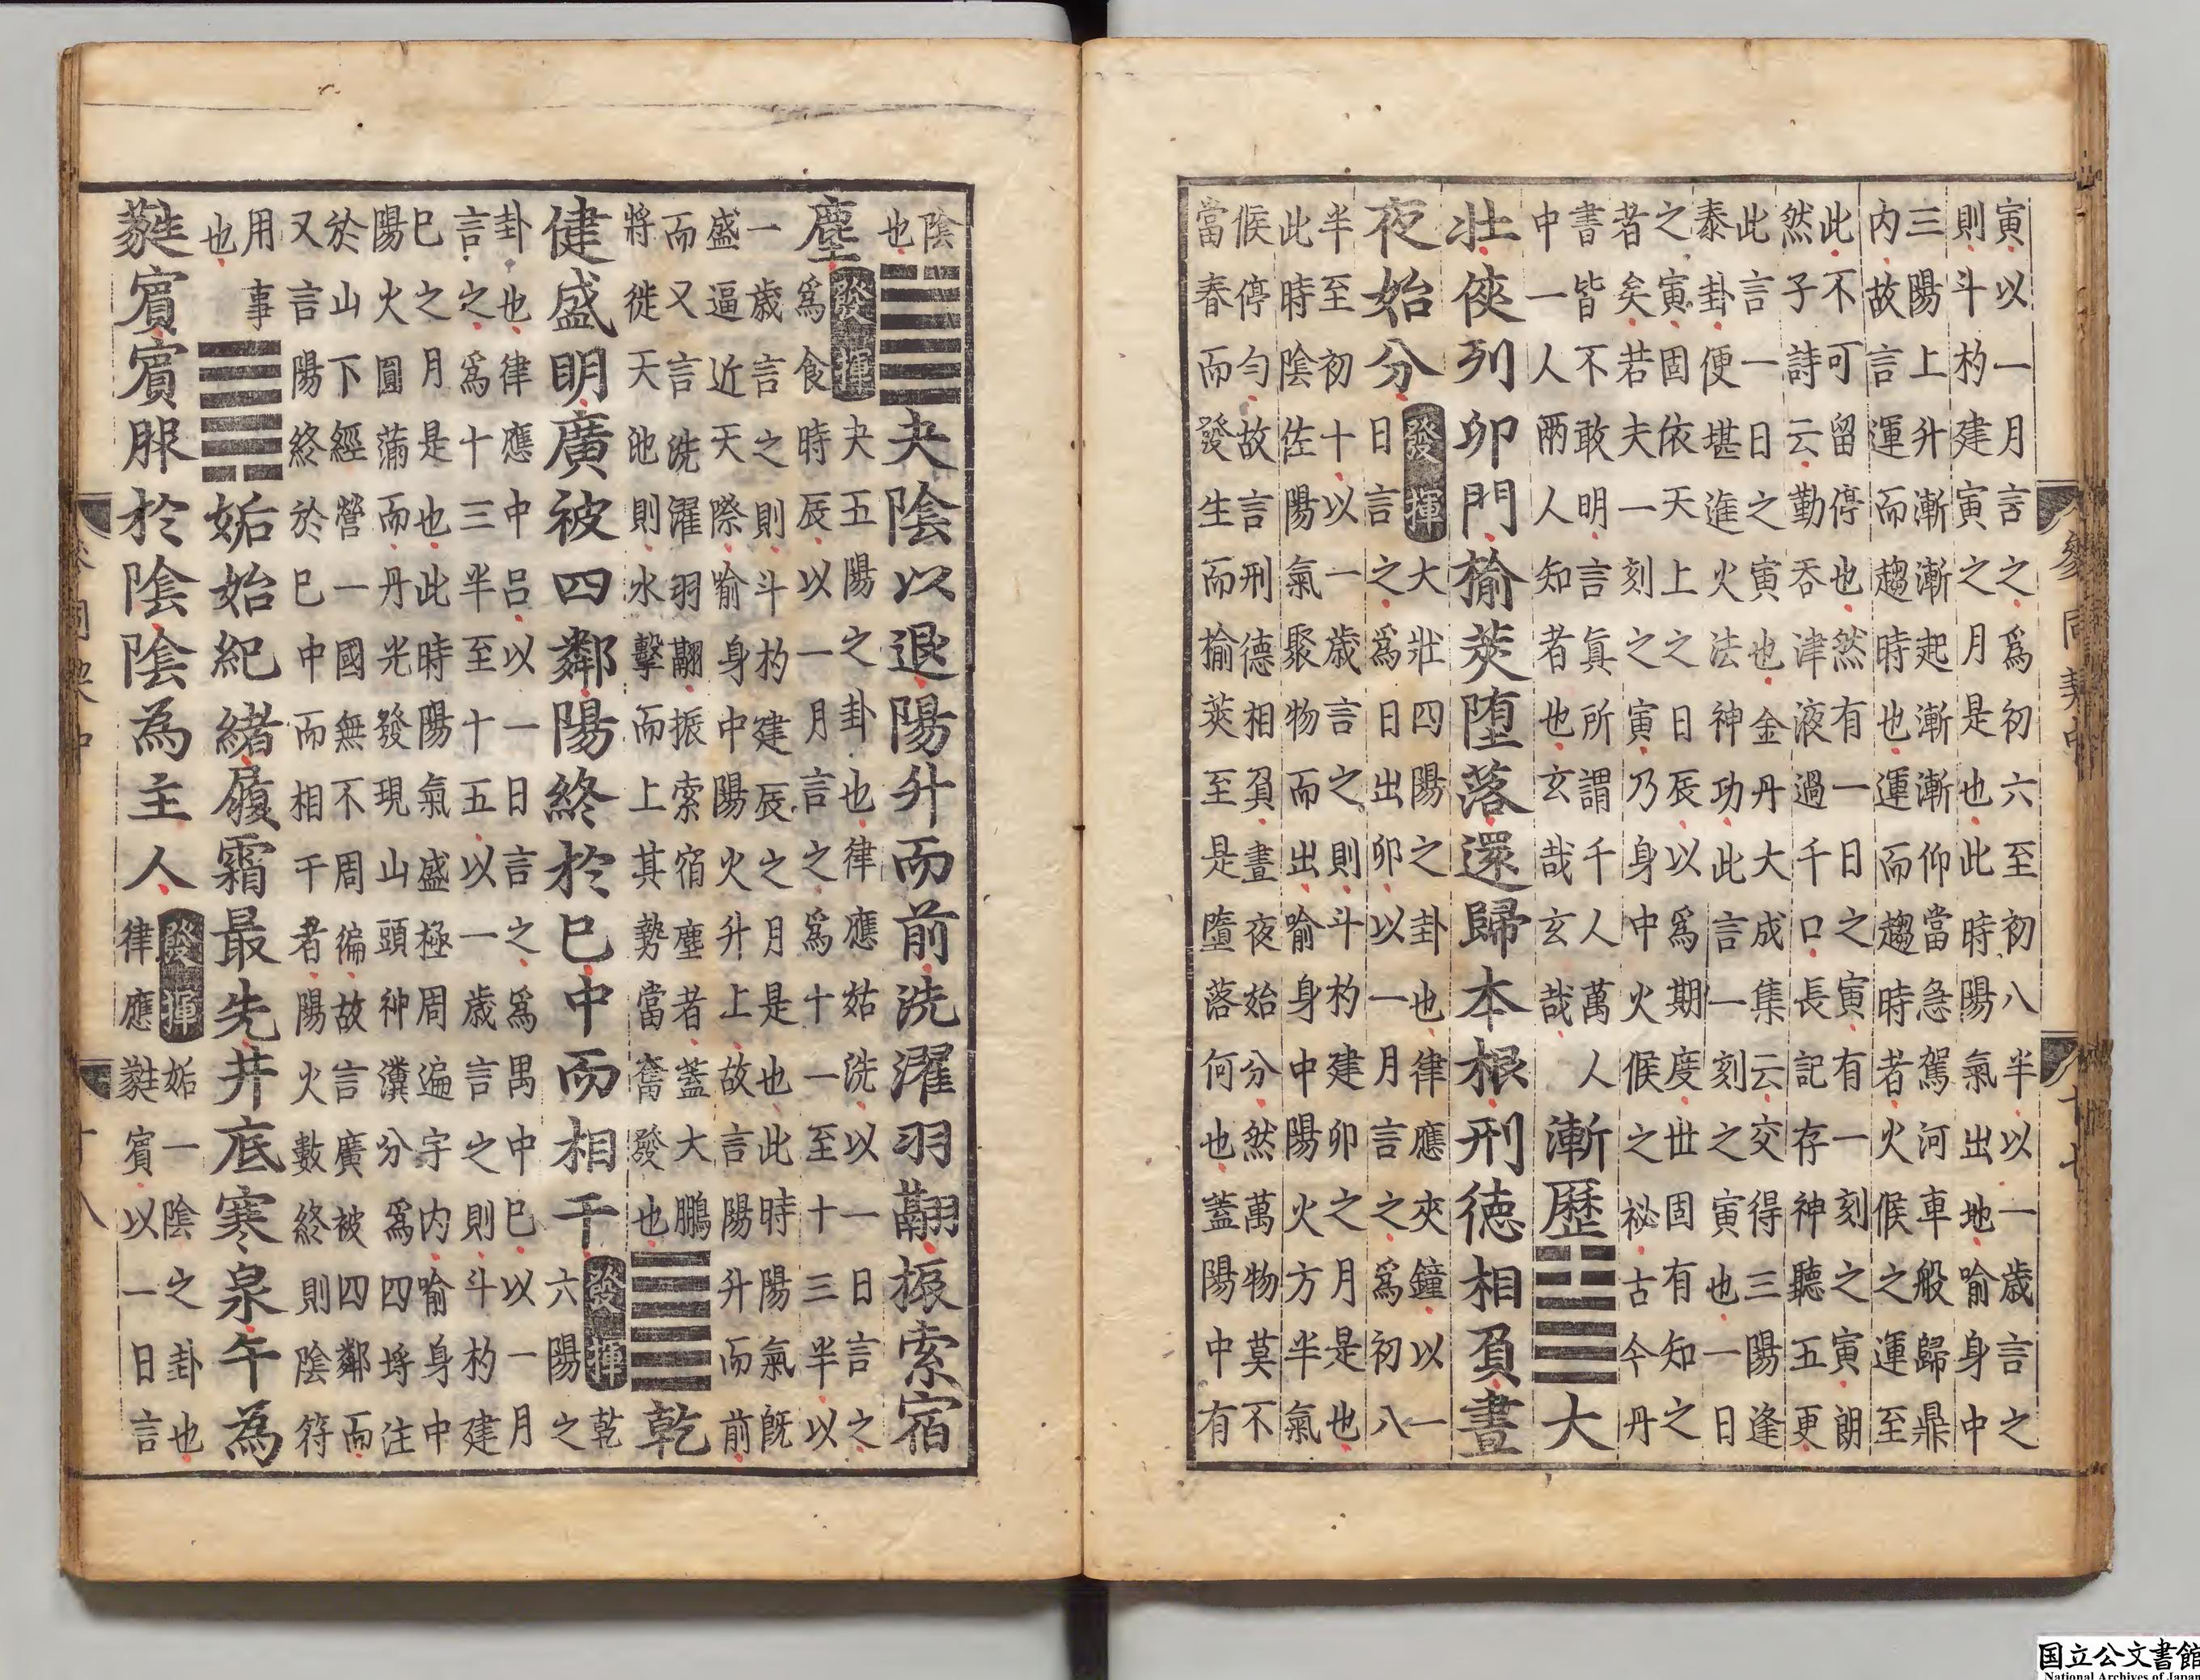 寅以一月言之爲初六至初八半以一歲言之
則斗杓建寅之月是也此時陽氣出地喻身中
三陽上升漸漸起漸漸仰當急駕河車般歸鼎
内故言運而趨時也運而趨時者火候之運至
此不可留停也然有一日之寅有一刻之寅朗
然子詩云勤吞津液過千口長記存神聽五更
此言一日之寅也金丹大成集云交得三陽逢
泰卦便堪進火法神功此言一刻之寅也一日
之寅固依天上之日辰以爲期度丗固有知之
者矣若夫一刻之寅乃身中火候之祕古今丹
書皆不敢明言眞所謂千人萬人
中一人兩人知者也玄哉玄哉
漸歷䷡大
壯俠列卯門榆莢墮落還歸本根刑德相負晝
夜始分
發揮大壯四陽之卦也律應夾鐘以一
日言之爲日出卯以一月言之爲初八
半至初十以一歲言之則斗杓建卯之月是也
此時陰佐陽氣聚物而出喻身中陽火方半氣
候停勻故言刑德相負晝夜始分然萬物莫不
當春而發生而榆莢至是墮落何也蓋陽中有
參同契中
十七
陰
也
䷪夬陰以退陽升而前洗濯羽翮振索宿
塵
發揮夬五陽之卦也律應姑洗以一日言之
爲食時辰以一月言之爲十一至十三半以
一歲言之則斗杓建辰之月是也此時陽氣既
盛逼近天際喻身中陽火升上故言陽升而前
而又言洗濯羽翮振索宿塵者蓋大鵬
將徙天池則水擊而上其勢當奮發也
䷀乾
健盛明廣被四鄰陽終於巳中而相干
發揮乾
六陽之
卦也律應中呂以一日言之爲禺中巳以一月
言之爲十三半至十五以一歲言之則斗杓建
巳之月是也此時陽氣盛極周遍宇内喻身中
陽火圓滿而丹光發現山頭神瀵分爲四埒注
於山下經營一國無不周徧故言廣被四鄰而
又言陽終於巳中而相干者陽火數終則陰符
用事
也
䷫姤始紀緒履霜最先井底寒泉午為
蕤賓賓服於陰陰為主人
發揮姤一陰之卦也
律應蕤賓以一日言
十八
国立公文書館
National Archives of Japan